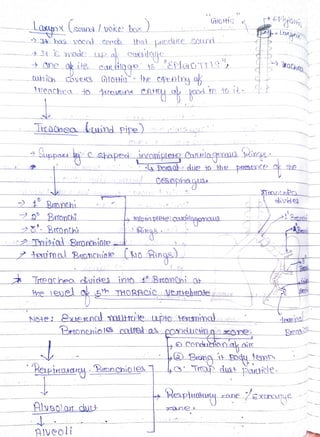 Larynx (sound / voice box)
→ It has vocal cords that produce sound
→ It is made up of cartilage
→ One of its cartilage is "EPIGLOTTIS",
which covers Glottis - the opening of
trachea to prevent entry of food in to it.
"Glottis"
→ Epiglottis
→ Larynx
→ Trachea
Trachea (wind pipe)
→ Support by C shaped incomplete Cartilagenous Rings.
↳ Dorsal - due to the presence of the
oesophagus
Trachea
divides
→ 1° Bronchi
→ 2° Bronchi
→ 3° Bronchi
incomplete cartilagenous
Rings.
→ Initial Bronchiole
→ Terminal Bronchiole (No Rings)
* Treachea divides into 1° Bronchi at
the level of 5th THORACIC Vertebrate
NOTE: External nostrile upto terminal
Bronchioles called as conducting zone.
① Condition of air
② Bring it Body temp
③ Trap dust particle.
Respiratory Bronchioles
Alveolar duct
Alveoli
→ Respiratory zone / Exchange
zone.